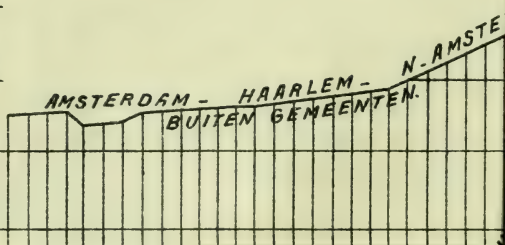 AMSTERDAM - HAARLEM - N-AMSTE
BUITEN GEMEENTEN.